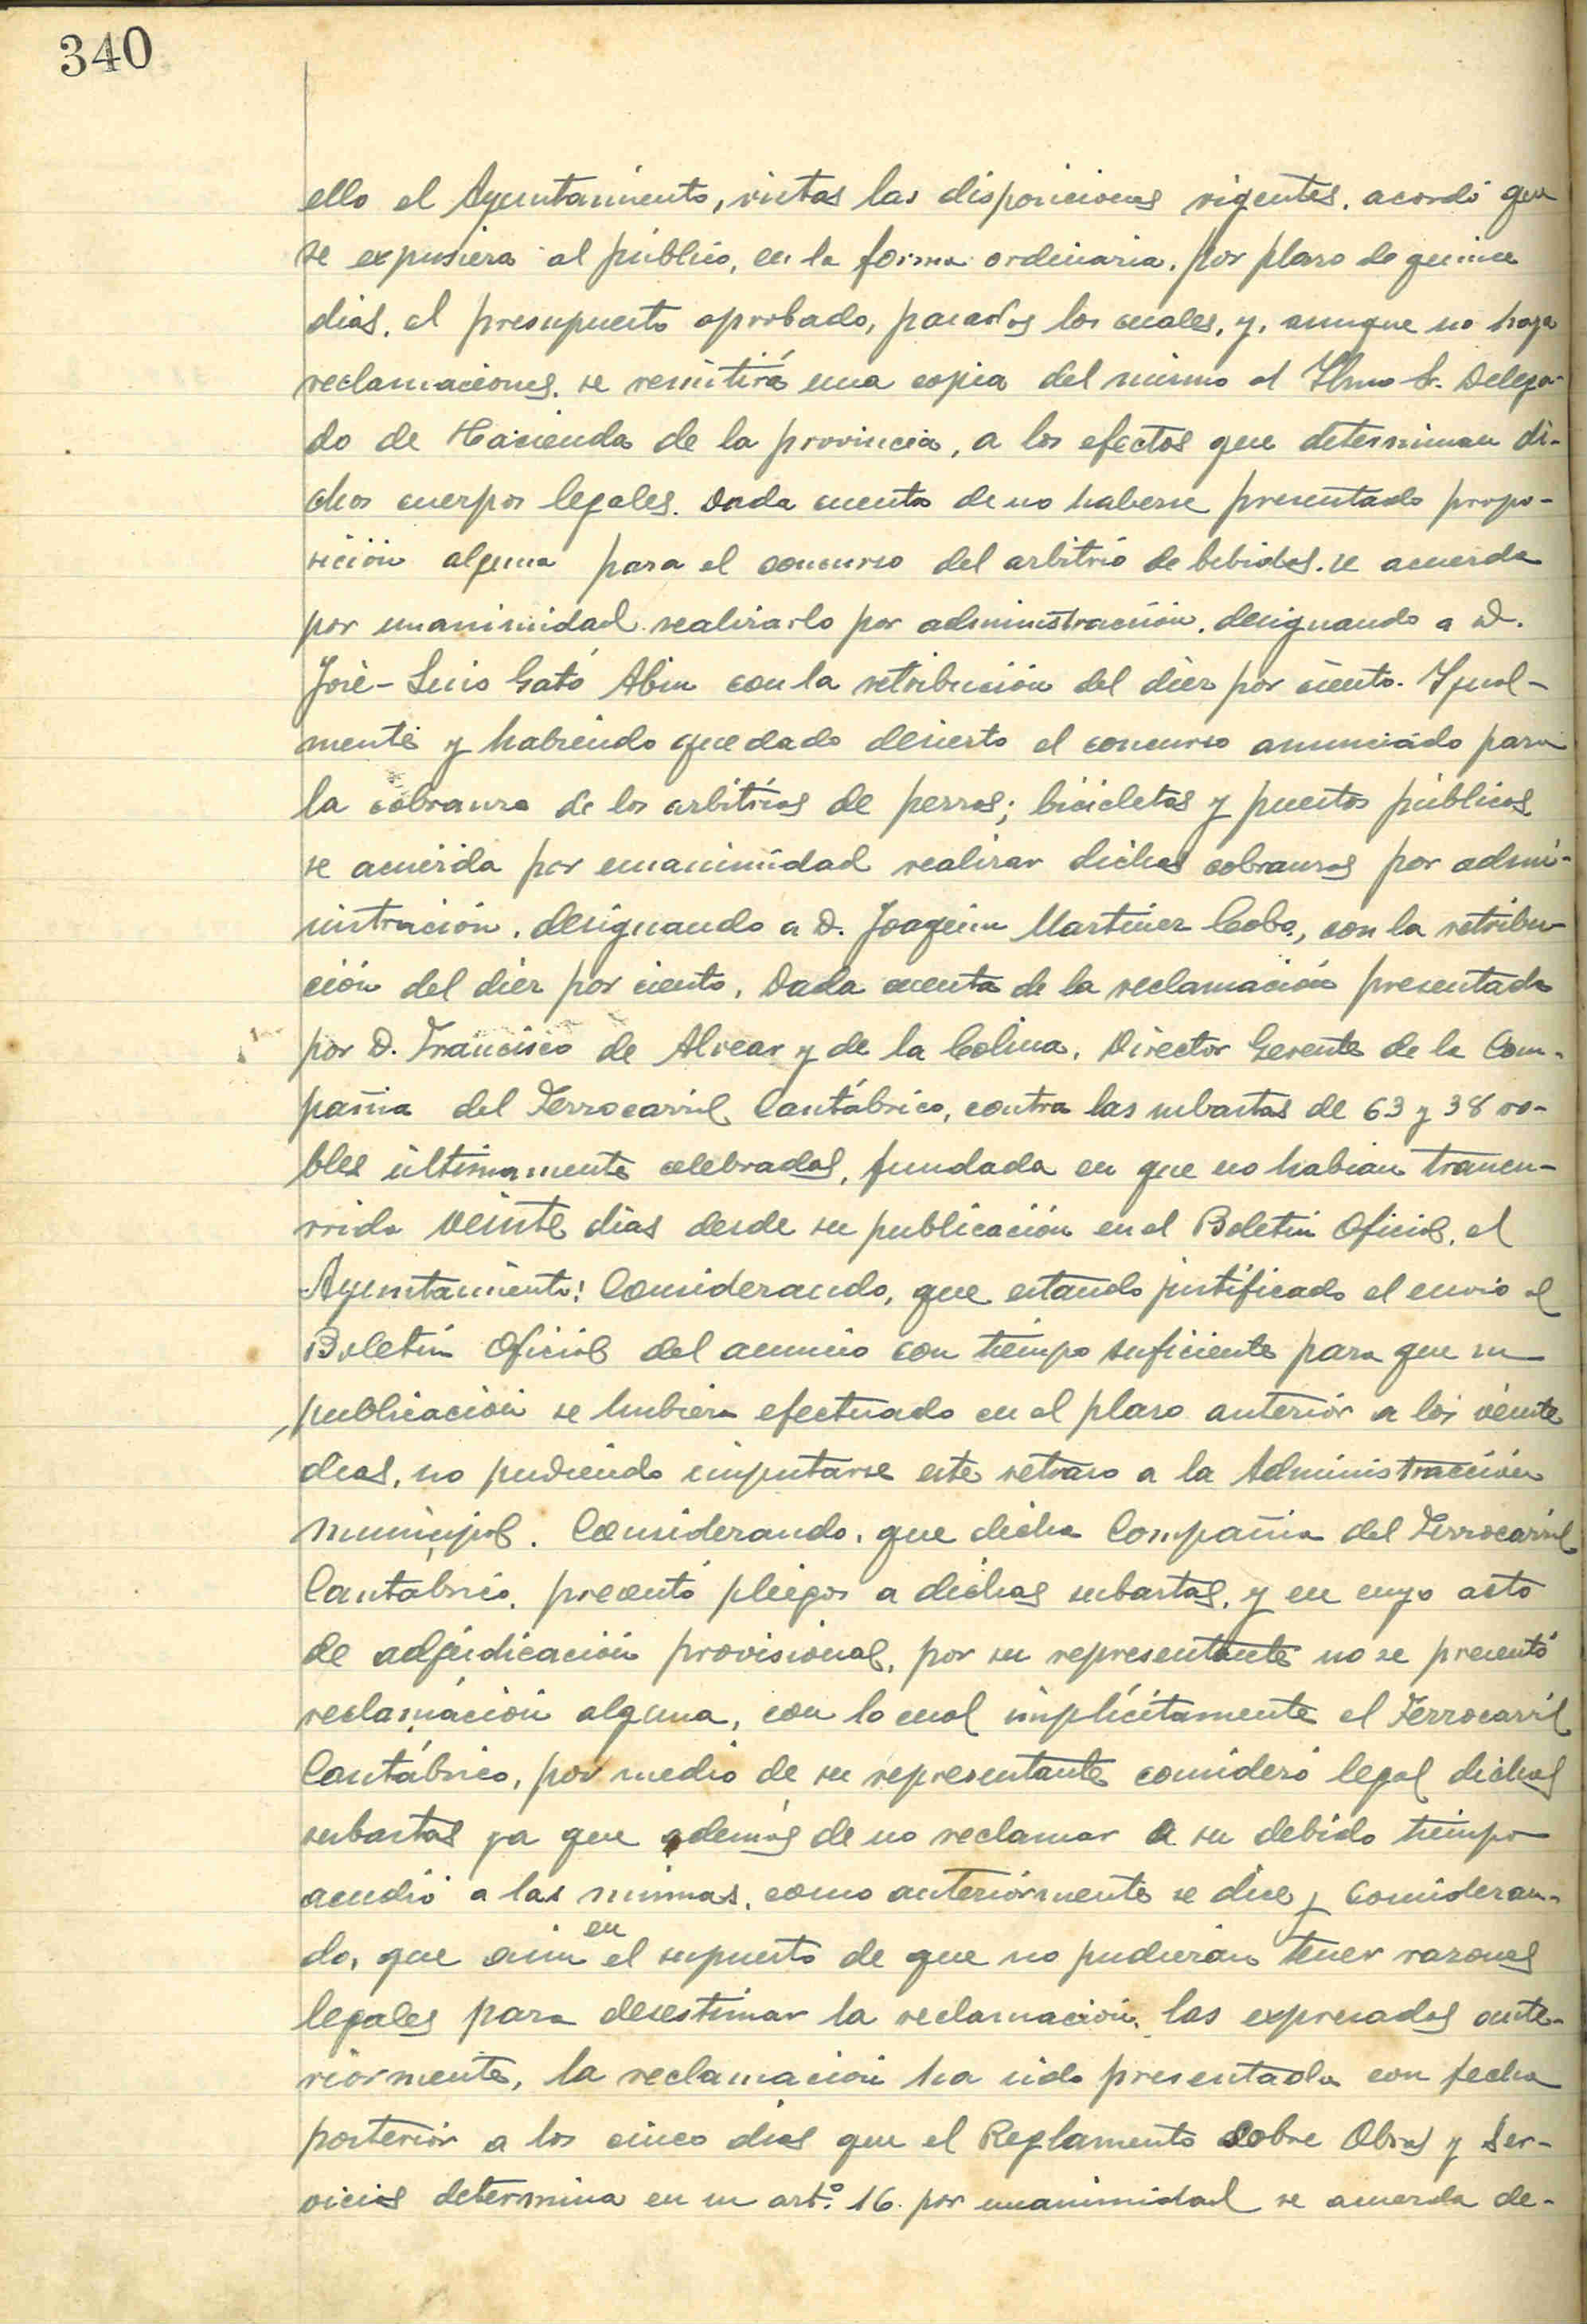 340
ello el Ayuntamiento, vistas las disposiciones vigentes. acordó que
se expusiera al público, en la forma ordinaria. por plazo de quince
dias. el presupuesto aprobado, pasados los cuales, y, aunque no haya
reclamaciones. se remitirá una copia del mismo al Ilmo Sr. Delega-
do de Hacienda de la provincia, a los efectos que determinan di-
chos cuerpos legales. Dada cuenta de no haberse presentado propo-
sición alguna para el concurso del arbitrio de bebidas. se acuerda
por unanimidad realizarlo por administración. designando a D.
José-Luis Gató Abin con la retribución del diez por ciento. Igual-
mente y habiendo quedado desierto el concurso anunciado para
la cobranza de los arbitrios de perros; bicicletas y puestos públicos
se acuerda por unanimidad realizar dichas cobranzas por admi-
nistración. designando a D. Joaquin Martinez Cobo, con la retribu-
ción del diez por ciento. Dada cuenta de la reclamación presentada
por D. Francisco de Alvear y de la Colina. Director Gerente de la Com-
pañia del Ferrocarril Cantábrico, contra las subastas de 63 y 38 ro-
bles últimamente celebradas, fundada en que no habian trancu-
rrido veinte dias desde su publicación en el Boletin Oficial. el
Ayuntamiento: Considerando, que estando justificado el envio al
Boletin Oficial del anuncio con tiempo suficiente para que su
publicación se hubiera efectuado en el plazo anterior a los veinte
dias, no pudiendo imputarse este retraso a la Administración
municipal. Considerando. que dicha Compañia del Ferrocarril
Cantabrico. presentó pliegos a dichas subastas, y en cuyo acto
de adjudicación provisional, por su representante no se presentó
reclamación alguna, con lo cual implícitamente el Ferrocarril
Cantábrico, por medio de su representante consideró legal dichas
subastas ya que además de no reclamar a su debido tiempo
acudió a las mismas, como anteriormente se dice y Consideran-
do, que aún en el supuesto de que no pudieran tener razones
legales para desestimar la reclamación, las expresadas ante-
riormente, la reclamación ha sido presentada con fecha
posterior a los cinco dias que el Reglamento sobre Obras y Ser-
vicios determina en su artº. 16. por unanimidad se acuerda de-